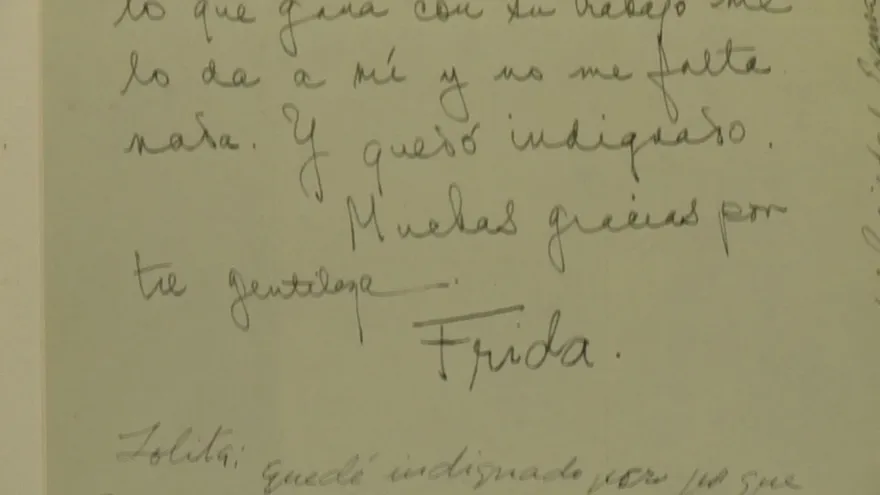 lo que gana con su trabajo me
lo da a mí y no me falta
nada. Y quedó indignado.
Muchas gracias por
tu gentileza.
Frida.
Lolita:
quedé indignado pero que